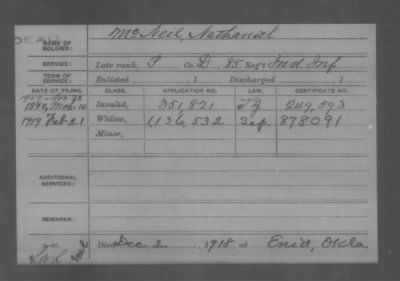 DEAD
McNeil, Nathaniel
NAME OF SOLDIER:
SERVICE: Late rank, P Co. D, 85 Reg't Ind. Inf
TERM OF SERVICE: Enlisted , 1 Discharged , 1
DATE OF FILING. CLASS. APPLICATION NO. LAW. CERTIFICATE NO.
1880, Mch. 10 Invalid, 351,821 249,593
1919 Feb 21 Widow, 1,136,532 Sep. 878091
Minor,
ADDITIONAL SERVICES:
REMARKS:
Died Dec 2, 1918, at Enid, Okla